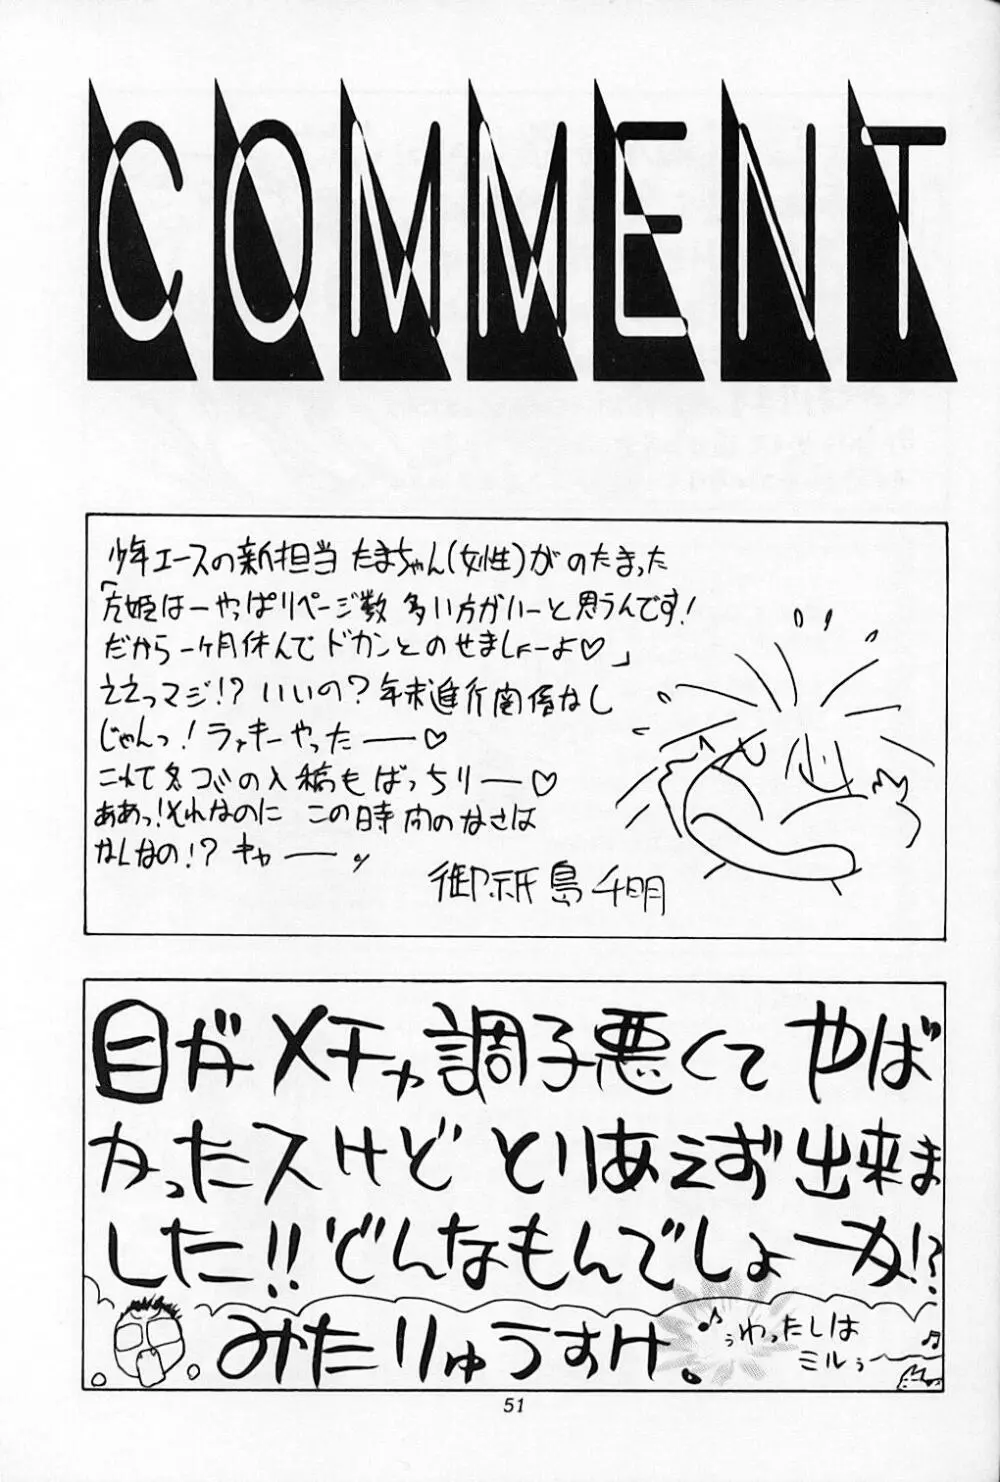 COMMENT
少年エースの新担当 たまちゃん(女性)がのたまった
「左姫はーやっぱりページ数 多い方がいーと思うんです!
だから一ヶ月休んで ドカンとのせましょーよ♡」
ええっマジ!? いいの? 年末進行関係なし
じゃんっ! ラッキーやったー♡
これで冬コミの入稿もばっちりー♡
ああっ!それなのに この時間のなさは
なんなの!? キャーッ
御祇島千明
目がメチャ調子悪くて やば
かったスけど とりあえず出来ま
した!! どんなもんでしょーか!?
みたりゅうすけ
♪ぅわったしは
ミルぅ〜♬
51